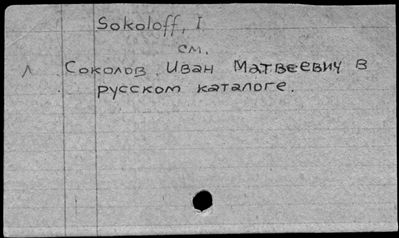 Sokoloff, I
см.
Соколов, Иван Матвеевич в
русском каталоге.